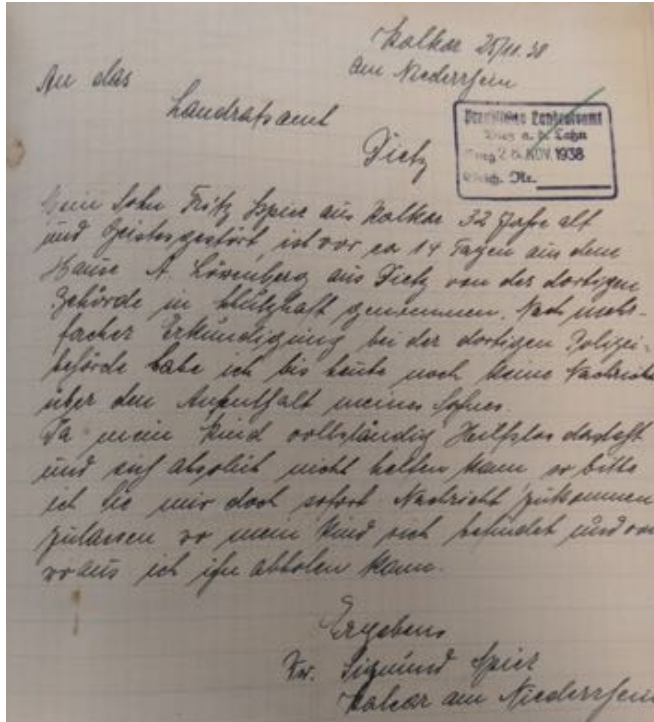 Kalkar 25/11.38
am Niederrhein
An das
Landratsamt
Dietz
Preußisches Landratsamt
Diez a. d. Lahn
Eing. 26. NOV. 1938
Nr.
Mein Sohn Fritz Spier aus Kalkar 32 Jahre alt
und Geistesgestört, ist vor ca 14 Tagen aus dem
Hause A. Löwenberg aus Dietz von der dortigen
Behörde in Schutzhaft genommen. Nach mehr-
facher Erkundigung bei der dortigen Polizei-
behörde habe ich bis heute noch keine Nachricht
über den Aufenthalt meines Sohnes.
Da mein Kind vollständig Hilfslos dasteht
und sich absolut nicht helfen kann so bitte
ich Sie mir doch sofort Nachricht zukommen
zulassen wo mein Kind sich befindet und von
wo aus ich ihn abholen kann.
Ergebens
Sigmund Spier
Kalkar am Niederrhein